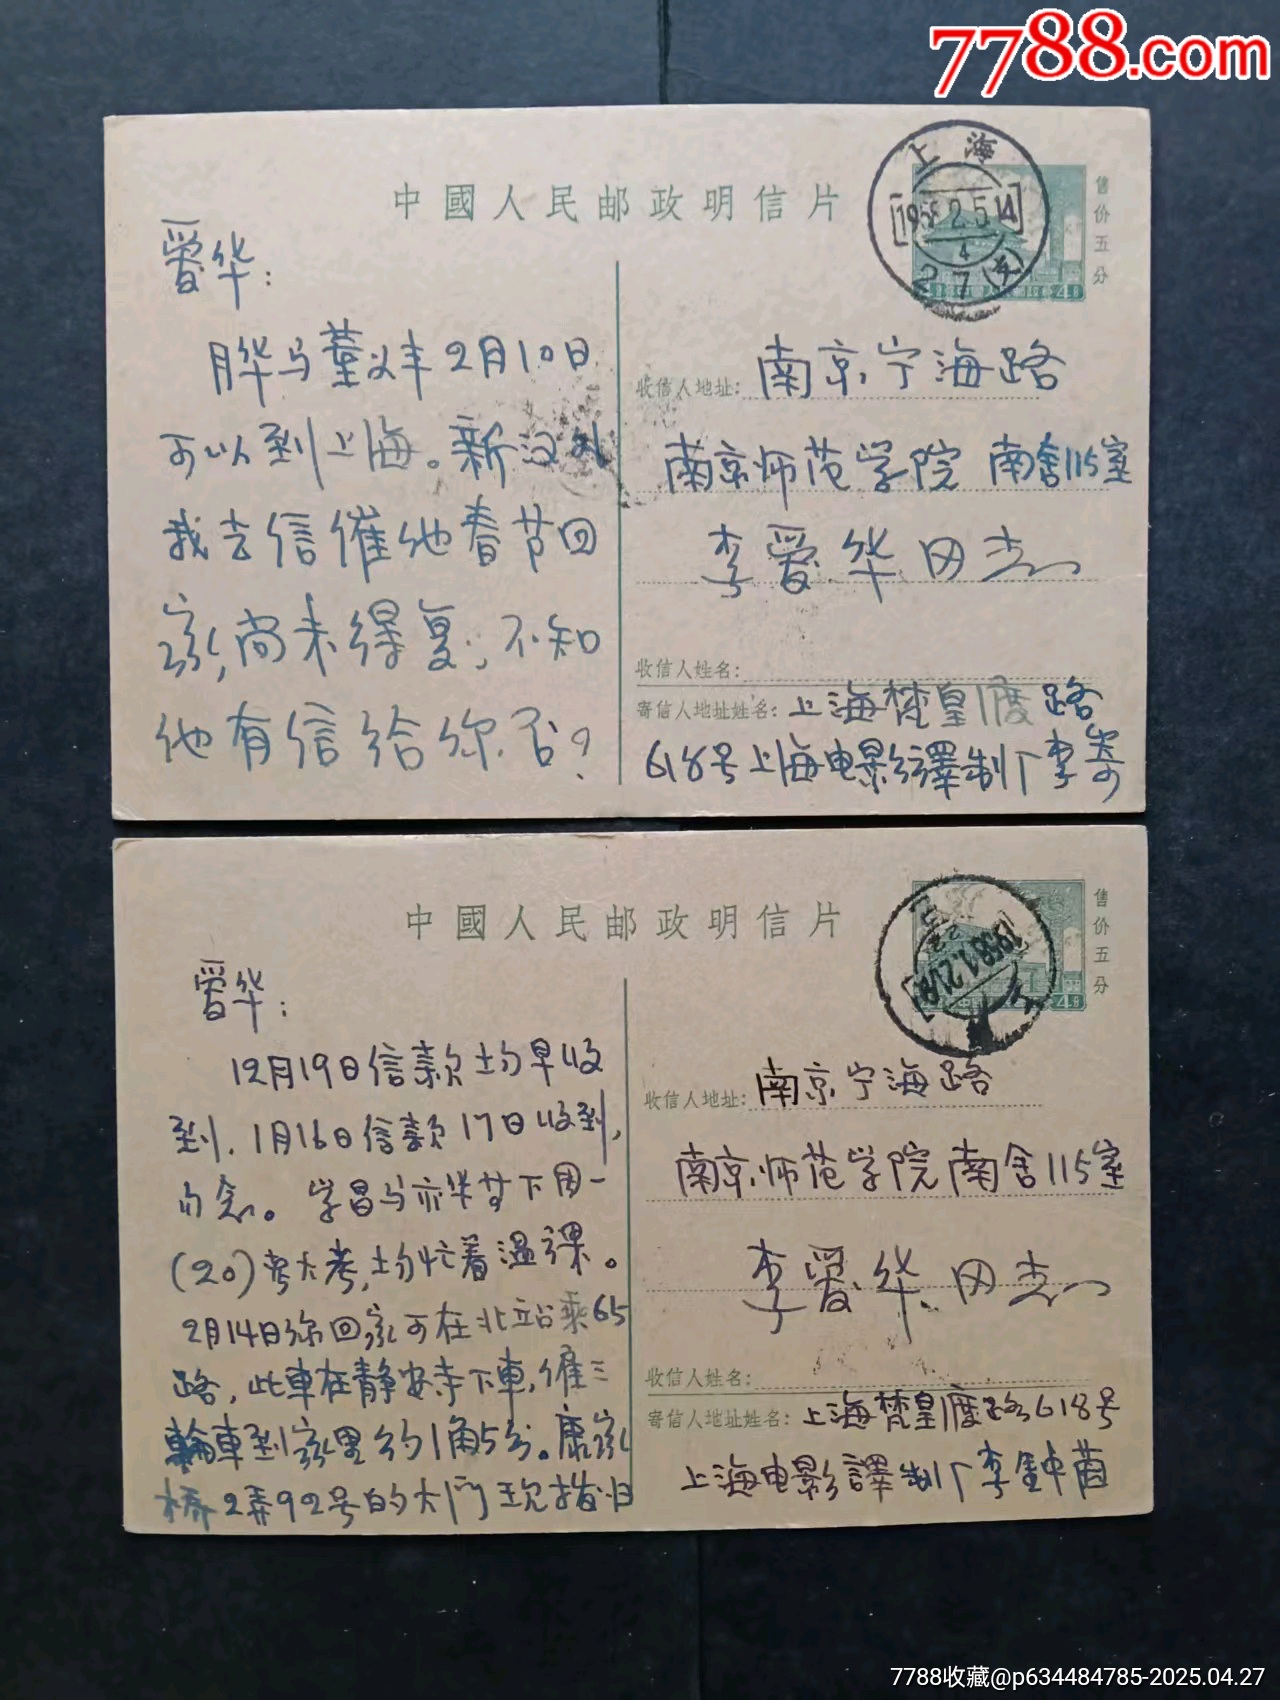 7788.com
中國人民邮政明信片
售价五分
上海
1958.2.5.14
4
27(支)
爱华:
月华与董义丰2月10日
可以到上海。新汉处
我去信催他春节回
家,尚未得复,不知
他有信给你否?
收信人地址:南京宁海路
南京师范学院 南舍115室
李爱华同志
收信人姓名:
寄信人地址姓名:上海梵皇渡路
618号上海电影译制厂李寄
中國人民邮政明信片
售价五分
上
1958.1.21
爱华:
12月19日信款均早收
到,1月16日信款17日收到,
勿念。学昌与亦华若下周一
(20)考大考,均忙着温课。
2月14日你回家可在北站乘65
路,此車在静安寺下車,雇三
輪車到家里约1角5分。康家
桥2弄92号的大门现拨归
收信人地址:南京宁海路
南京师范学院南舍115室
李爱华同志
收信人姓名:
寄信人地址姓名:上海梵皇渡路618号
上海电影譯制厂李鍾
7788收藏@p634484785-2025.04.27